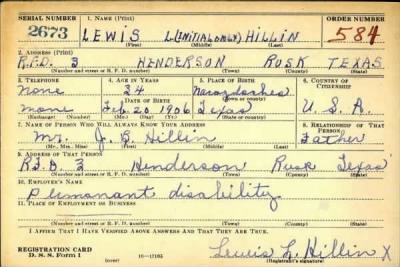 SERIAL NUMBER 1. NAME (Print) ORDER NUMBER
2673 LEWIS L(INITIAL ONLY) HILLIN 584
(First) (Middle) (Last)
2. ADDRESS (Print)
R.F.D. 3 HENDERSON RUSK TEXAS
(Number and street or R. F. D. number) (Town) (County) (State)
3. TELEPHONE 4. AGE IN YEARS 5. PLACE OF BIRTH 6. COUNTRY OF CITIZENSHIP
None 34 Nacogdoches
DATE OF BIRTH
none Feb. 20 1906 Texas U.S.A.
(Exchange) (Number) (Mo.) (Day) (Yr.) (State or country)
7. NAME OF PERSON WHO WILL ALWAYS KNOW YOUR ADDRESS 8. RELATIONSHIP OF THAT PERSON
Mr. J. B. Hillin Father
(Mr., Mrs., Miss) (First) (Middle) (Last)
9. ADDRESS OF THAT PERSON
R.F.D. 3 Henderson Rusk Texas
(Number and street or R. F. D. number) (Town) (County) (State)
10. EMPLOYER'S NAME
disability
11. PLACE OF EMPLOYMENT OR BUSINESS
(Number and street or R. F. D. number) (Town) (County) (State)
I AFFIRM THAT I HAVE VERIFIED ABOVE ANSWERS AND THAT THEY ARE TRUE.
REGISTRATION CARD
D. S. S. Form 1 (over) Lewis L. Hillin X
(Registrant's signature)